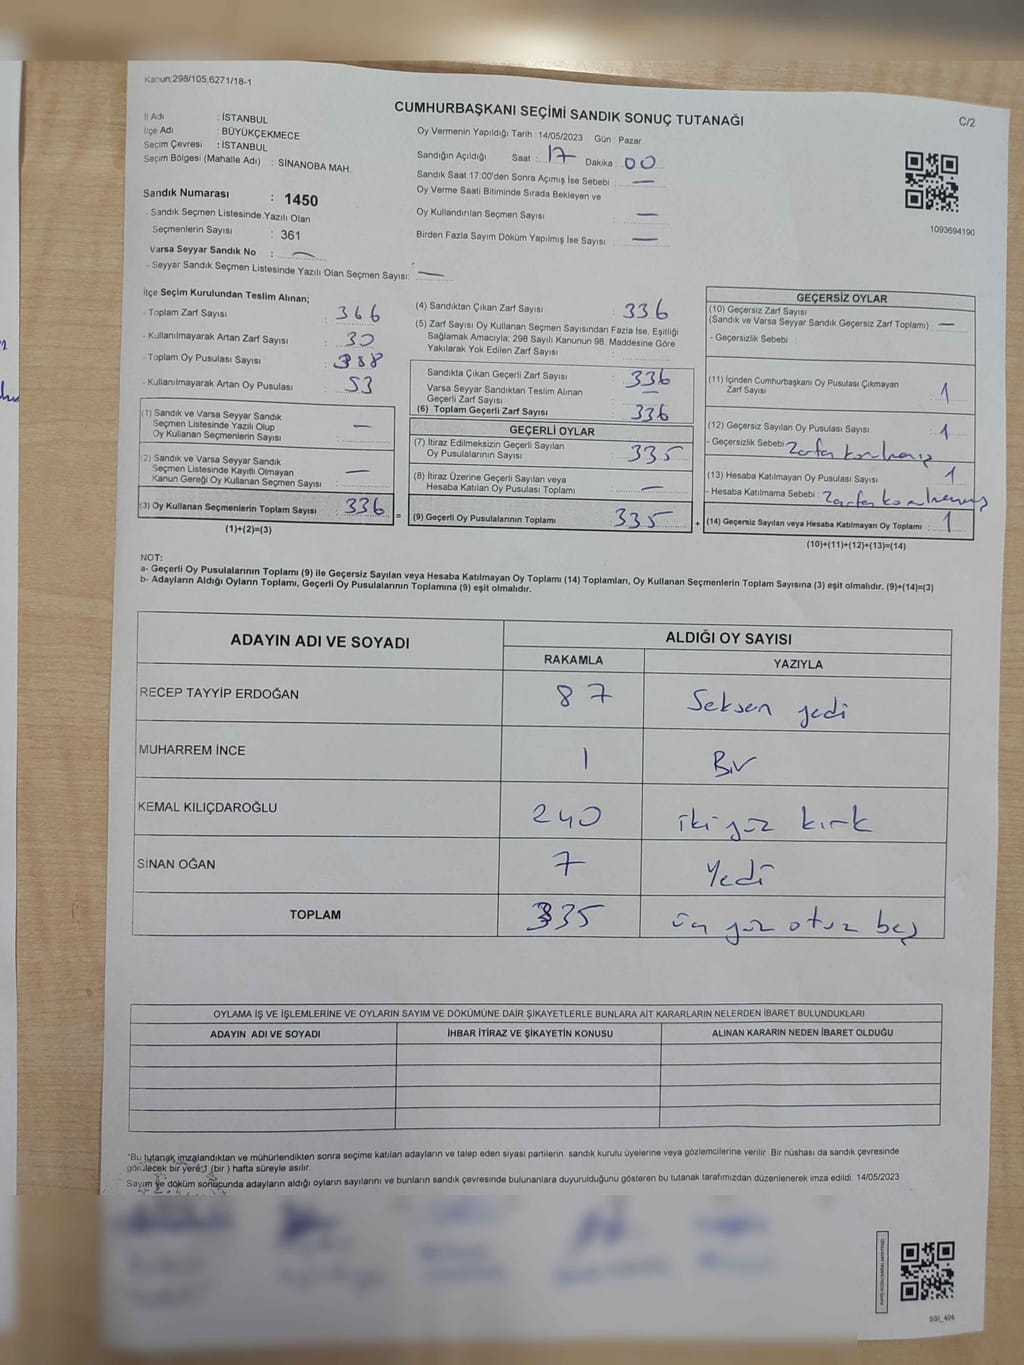 Kanun:298/105,6271/18-1
CUMHURBAŞKANI SEÇİMİ SANDIK SONUÇ TUTANAĞI
C/2
İl Adı : İSTANBUL
İlçe Adı : BÜYÜKÇEKMECE
Seçim Çevresi : İSTANBUL
Seçim Bölgesi (Mahalle Adı) : SİNANOBA MAH.
Sandık Numarası : 1450
- Sandık Seçmen Listesinde Yazılı Olan
Seçmenlerin Sayısı : 361
Varsa Seyyar Sandık No : —
- Seyyar Sandık Seçmen Listesinde Yazılı Olan Seçmen Sayısı: —
Oy Vermenin Yapıldığı Tarih :14/05/2023 Gün : Pazar
Sandığın Açıldığı Saat : 17 Dakika : 00
Sandık Saat 17:00'den Sonra Açımış İse Sebebi : —
Oy Verme Saati Bitiminde Sırada Bekleyen ve
Oy Kullandırılan Seçmen Sayısı : —
Birden Fazla Sayım Döküm Yapılmış İse Sayısı : —
1093694190
İlçe Seçim Kurulundan Teslim Alınan;
- Toplam Zarf Sayısı : 366
- Kullanılmayarak Artan Zarf Sayısı : 30
- Toplam Oy Pusulası Sayısı : 388
- Kullanılmayarak Artan Oy Pusulası : 53
(1) Sandık ve Varsa Seyyar Sandık
Seçmen Listesinde Yazılı Olup
Oy Kullanan Seçmenlerin Sayısı : —
(2) Sandık ve Varsa Seyyar Sandık
Seçmen Listesinde Kayıtlı Olmayan
Kanun Gereği Oy Kullanan Seçmen Sayısı : —
(3) Oy Kullanan Seçmenlerin Toplam Sayısı : 336 =
(1)+(2)=(3)
(4) Sandıktan Çıkan Zarf Sayısı : 336
(5) Zarf Sayısı Oy Kullanan Seçmen Sayısından Fazla İse, Eşitliği
Sağlamak Amacıyla; 298 Sayılı Kanunun 98. Maddesine Göre
Yakılarak Yok Edilen Zarf Sayısı :
Sandıkta Çıkan Geçerli Zarf Sayısı : 336
Varsa Seyyar Sandıktan Teslim Alınan
Geçerli Zarf Sayısı : —
(6) Toplam Geçerli Zarf Sayısı : 336
GEÇERLİ OYLAR
(7) İtiraz Edilmeksizin Geçerli Sayılan
Oy Pusulalarının Sayısı : 335
(8) İtiraz Üzerine Geçerli Sayılan veya
Hesaba Katılan Oy Pusulası Toplamı : —
(9) Geçerli Oy Pusulalarının Toplamı : 335 +
GEÇERSİZ OYLAR
(10) Geçersiz Zarf Sayısı
(Sandık ve Varsa Seyyar Sandık Geçersiz Zarf Toplamı) : —
- Geçersizlik Sebebi :
(11) İçinden Cumhurbaşkanı Oy Pusulası Çıkmayan
Zarf Sayısı : 1
(12) Geçersiz Sayılan Oy Pusulası Sayısı : 1
- Geçersizlik Sebebi :
(13) Hesaba Katılmayan Oy Pusulası Sayısı : 1
- Hesaba Katılmama Sebebi :
(14) Geçersiz Sayılan veya Hesaba Katılmayan Oy Toplamı : 1
(10)+(11)+(12)+(13)=(14)
NOT:
a- Geçerli Oy Pusulalarının Toplamı (9) ile Geçersiz Sayılan veya Hesaba Katılmayan Oy Toplamı (14) Toplamları, Oy Kullanan Seçmenlerin Toplam Sayısına (3) eşit olmalıdır. (9)+(14)=(3)
b- Adayların Aldığı Oyların Toplamı, Geçerli Oy Pusulalarının Toplamına (9) eşit olmalıdır.
ADAYIN ADI VE SOYADI
ALDIĞI OY SAYISI
RAKAMLA YAZIYLA
RECEP TAYYİP ERDOĞAN 87 Seksen yedi
MUHARREM İNCE 1 Bir
KEMAL KILIÇDAROĞLU 240 iki yüz kırk
SİNAN OĞAN 7 Yedi
TOPLAM 335 üç yüz otuz beş
OYLAMA İŞ VE İŞLEMLERİNE VE OYLARIN SAYIM VE DÖKÜMÜNE DAİR ŞİKAYETLERLE BUNLARA AİT KARARLARIN NELERDEN İBARET BULUNDUKLARI
ADAYIN ADI VE SOYADI İHBAR İTİRAZ VE ŞİKAYETİN KONUSU ALINAN KARARIN NEDEN İBARET OLDUĞU
*Bu tutanak imzalandıktan ve mühürlendikten sonra seçime katılan adayların ve talep eden siyasi partilerin, sandık kurulu üyelerine veya gözlemcilerine verilir. Bir nüshası da sandık çevresinde
görülecek bir yere 1 (bir ) hafta süreyle asılır.
Sayım ve döküm sonucunda adayların aldığı oyların sayılarını ve bunların sandık çevresinde bulunanlara duyurulduğunu gösteren bu tutanak tarafımızdan düzenlenerek imza edildi. 14/05/2023
SSI_404